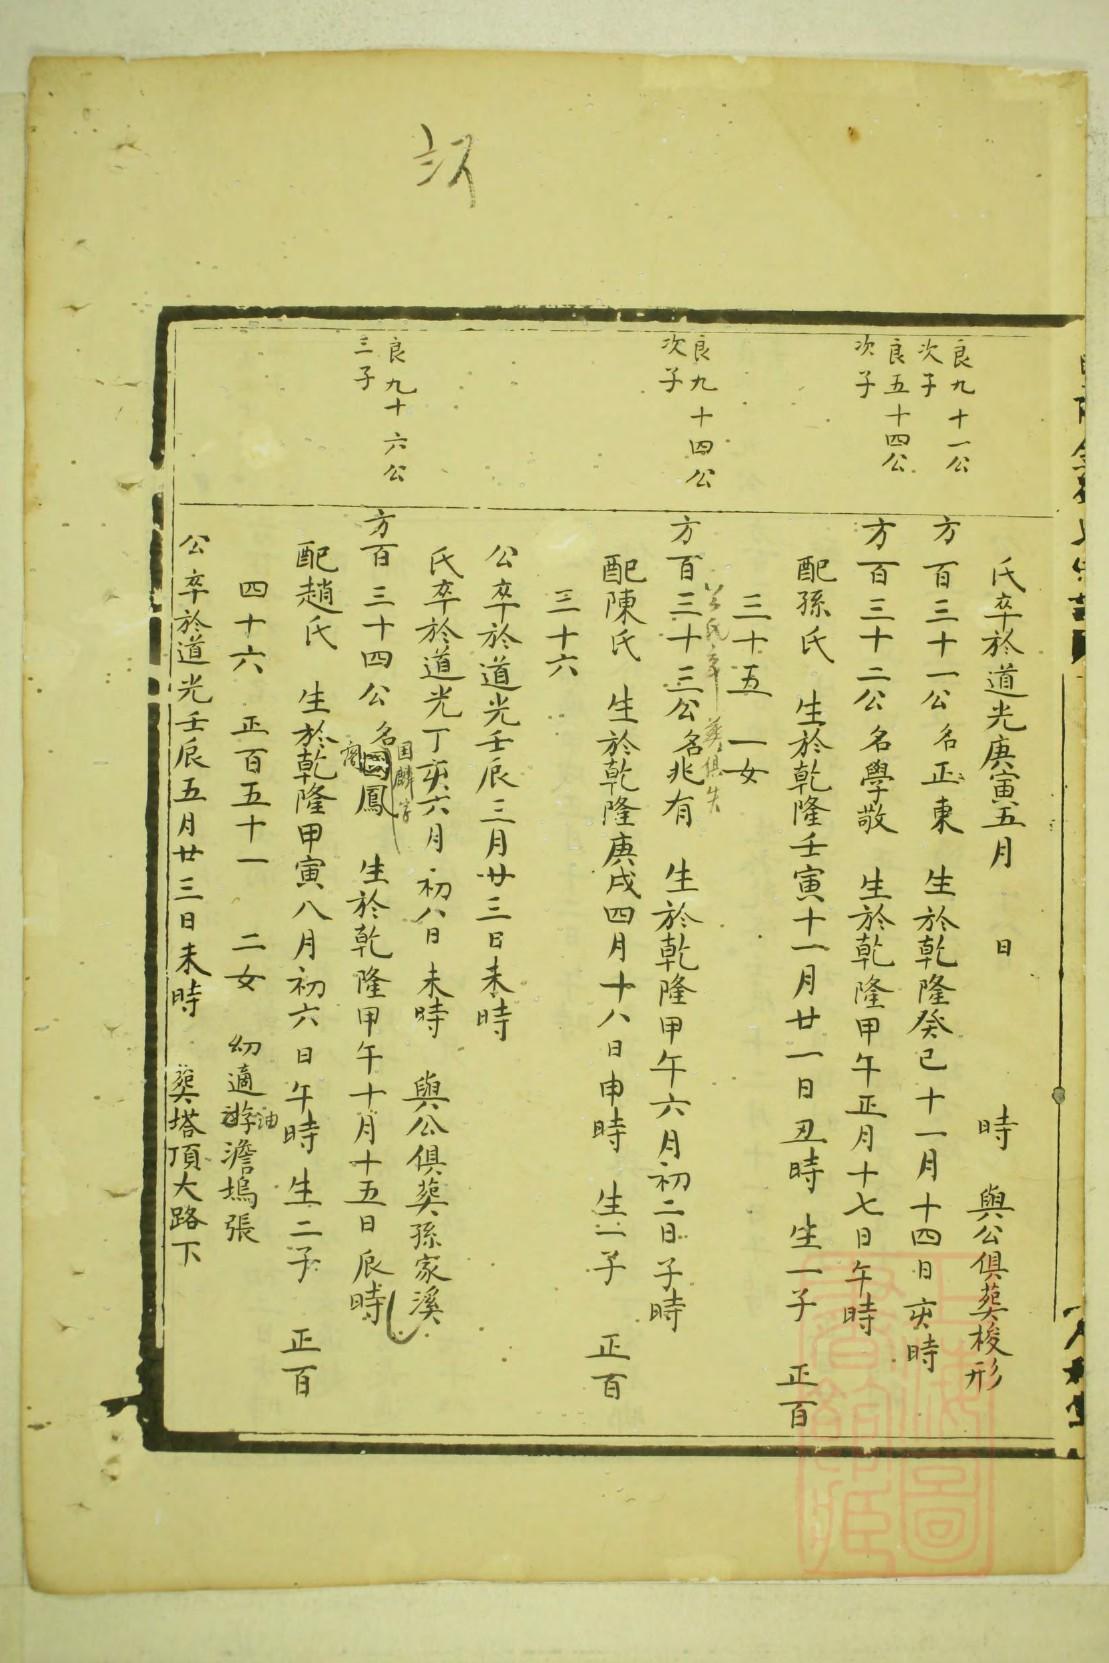 氏卒於道光庚寅五月 日 時 與公俱葬梭形
良九十一公
次子
方百三十一公名正東 生於乾隆癸巳十一月十四日亥時
良五十四公
次子
方百三十二公名學敬 生於乾隆甲午正月十七日午時
配孫氏 生於乾隆壬寅十一月廿一日丑時 生一子 正百
三十五 一女
公氏卒葬俱失
良九十四公
次子
方百三十三公名兆有 生於乾隆甲午六月初二日子時
配陳氏 生於乾隆庚戌四月十八日申時 生一子 正百
三十六
公卒於道光壬辰三月廿三日未時
氏卒於道光丁亥六月初八日未時 與公俱葬孫家溪
良九十六公
三子
方百三十四公名國鳳 生於乾隆甲午十月十五日辰時
国麟
配趙氏 生於乾隆甲寅八月初六日午時 生二子 正百
四十六 正百五十一 二女 幼適游澹塢張
油
公卒於道光壬辰五月廿三日未時 葬塔頂大路下
上海圖
書館藏